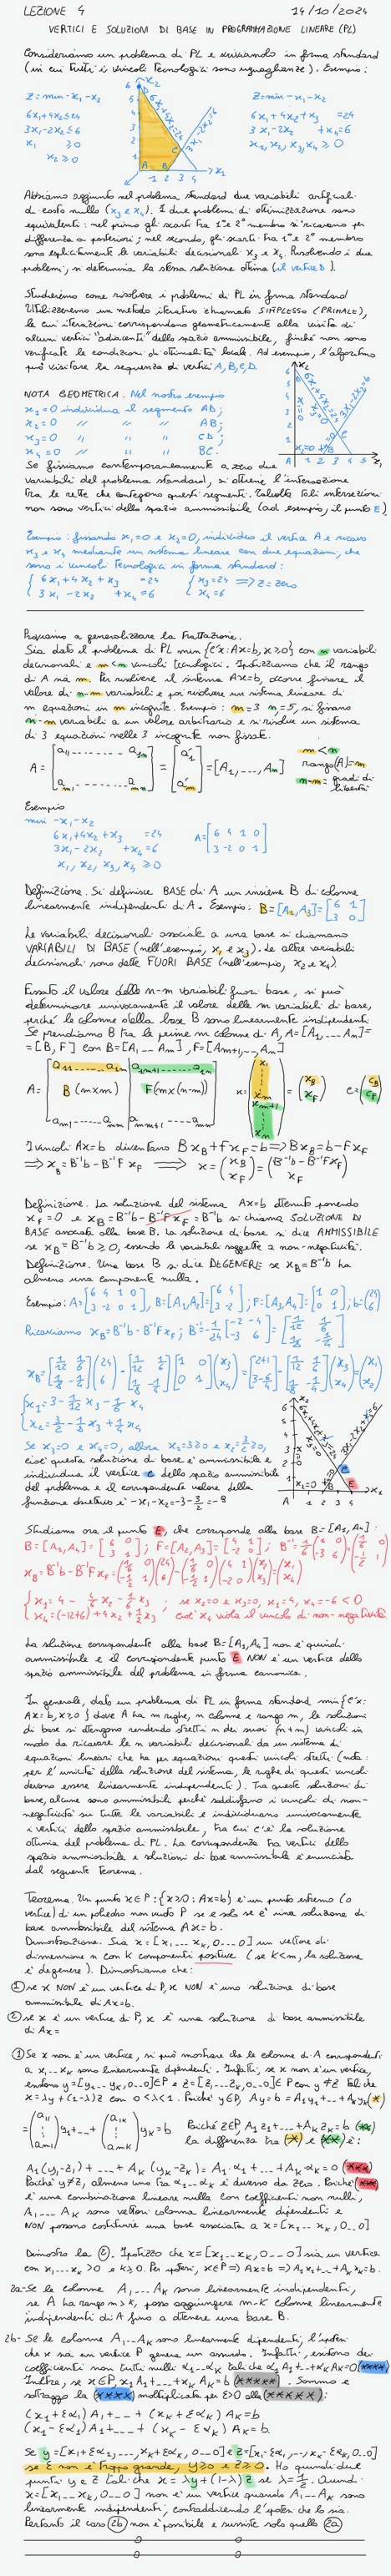 LEZIONE 4 14/10/2024
VERTICI E SOLUZIONI DI BASE IN PROGRAMMAZIONE LINEARE (PL)
Consideriamo un problema di PL e scriviamolo in forma standard
(in cui tutti i vincoli tecnologici sono uguaglianze). Esempio:
Z=min -x1-x2
6x1+4x2≤24
3x1-2x2≤6
x1 ≥0
x2≥0
Z=min -x1-x2
6x1+4x2+x3 =24
3x1-2x2 +x4=6
x1,x2,x3,x4≥0
Abbiamo aggiunto nel problema standard due variabili artificiali
di costo nullo (x3 e x4). I due problemi di ottimizzazione sono
equivalenti: nel primo gli scarti tra 1° e 2° membro si ricavano per
differenza a posteriori; nel secondo, gli scarti tra 1° e 2° membro
sono esplicitamente le variabili decisionali x3 e x4. Risolvendo i due
problemi, si determina la stessa soluzione ottima (il vertice D).
Studieremo come risolvere i problemi di PL in forma standard
Utilizzeremo un metodo iterativo chiamato SIMPLESSO (PRIMALE),
le cui iterazioni corrispondono geometricamente alla visita di
alcuni vertici "adiacenti" dello spazio ammissibile, finché non sono
verificate le condizioni di ottimalità locale. Ad esempio, l'algoritmo
può visitare la sequenza di vertici A,B,C,D.
NOTA GEOMETRICA. Nel nostro esempio
x1=0 individua il segmento AD;
x2=0 " " " AB;
x3=0 " " " CD;
x4=0 " " " BC.
Se fissiamo contemporaneamente a zero due
variabili del problema standard, si ottiene l'intersezione
tra le rette che contengono questi segmenti. Talvolta tali intersezioni
non sono vertici dello spazio ammissibile (ad esempio, il punto E)
Esempio: fissando x1=0 e x2=0, individuo il vertice A e ricavo
x3 e x4 mediante un sistema lineare con due equazioni, che
sono i vincoli tecnologici in forma standard:
{6x1+4x2+x3 =24 {x3=24 ⟹ Z=zero
3x1-2x2 +x4=6 x4=6
Proviamo a generalizzare la trattazione.
Sia dato il problema di PL min{c'x: Ax=b, x≥0} con n variabili
decisionali e m<n vincoli tecnologici. Ipotizziamo che il rango
di A sia m. Per risolvere il sistema Ax=b, occorre fissare il
valore di n-m variabili e poi risolvere un sistema lineare di
m equazioni in m incognite. Esempio: m=3 n=5, si fissano
n-m variabili a un valore arbitrario e si risolve un sistema
di 3 equazioni nelle 3 incognite non fissate.
A=[a11......a1n ... am1......amn]=[a'1 ... a'm]=[A1,...,An]
m<n
rango(A)=m
n-m=gradi di libertà
Esempio
min -x1-x2
6x1+4x2+x3 =24
3x1-2x2 +x4=6
x1,x2,x3,x4≥0
A=[6 4 1 0
3 -2 0 1]
Definizione. Si definisce BASE di A un insieme B di colonne
linearmente indipendenti di A. Esempio: B=[A1,A3]=[6 1
3 0]
Le variabili decisionali associate a una base si chiamano
VARIABILI DI BASE (nell'esempio, x1 e x3). Le altre variabili
decisionali sono dette FUORI BASE (nell'esempio, x2 e x4).
Fissato il valore delle n-m variabili fuori base, si può
determinare univocamente il valore delle m variabili di base,
perché le colonne della base B sono linearmente indipendenti
Se prendiamo B tra le prime m colonne di A, A=[A1,...An]=
=[B,F] con B=[A1...Am], F=[Am+1,...,An]
A=[a11......a1m a1m+1......a1n
B(m×m) F(m×(n-m))
am1...... amn]
x=(x1 ... xm xm+1 ... xn)=(xB xF) c=(cB cF)
I vincoli Ax=b diventano BxB+FxF=b ⟹ BxB=b-FxF
⟹ xB=B⁻¹b-B⁻¹FxF ⟹ x=(xB xF)=(B⁻¹b-B⁻¹FxF xF)
Definizione. La soluzione del sistema Ax=b ottenuta ponendo
xF=0 e xB=B⁻¹b-B⁻¹FxF=B⁻¹b si chiama SOLUZIONE DI
BASE associata alla base B. La soluzione di base si dice AMMISSIBILE
se xB=B⁻¹b≥0, essendo le variabili soggette a non-negatività.
Definizione. Una base B si dice DEGENERE se xB=B⁻¹b ha
almeno una componente nulla.
Esempio: A=[6 4 1 0 3 -2 0 1], B=[A1,A2]=[6 4 3 -2]; F=[A3,A4]=[1 0 0 1]; b=(24 6)
Ricaviamo xB=B⁻¹b-B⁻¹FxF; B⁻¹=-1/24[-2 -4 -3 6]=[1/12 1/6 1/8 -1/4]
xB=[1/12 1/6 1/8 -1/4](24 6)-[1/12 1/6 1/8 -1/4][1 0 0 1](x3 x4)=[2+1 3-6/4]-[1/12 1/6 1/8 -1/4](x3 x4)=(x1 x2)
{x1=3-1/12 x3-1/6 x4
x2=3/2-1/8 x3+1/4 x4
Se x3=0 e x4=0, allora x1=3≥0 e x2=3/2≥0,
cioè questa soluzione di base è ammissibile e
individua il vertice C dello spazio ammissibile
del problema e il corrispondente valore della
funzione obiettivo è -x1-x2=-3-3/2=
Studiamo ora il punto E, che corrisponde alla base B=[A1,A4]:
B=[A1,A4]=[6 0 3 1]; F=[A2,A3]=[4 1 -2 0]; B⁻¹=1/6(1 0 -3 6)=(1/6 0 -1/2 1)
xB=B⁻¹b-B⁻¹FxF=(1/6 0 -1/2 1)(24 6)-(1/6 0 -1/2 1)(4 1 -2 0)(x2 x3)=(x1 x4)
{x1=4-4/6 x2-1/6 x3 ; se x2=0 e x3=0, x1=4, x4=-6<0
x4=(-12+6)+4x2+1/2 x3 cioè x4 viola il vincolo di non-negatività
La soluzione corrispondente alla base B=[A1,A4] non è quindi
ammissibile e il corrispondente punto E NON è un vertice dello
spazio ammissibile del problema in forma canonica.
In generale, dato un problema di PL in forma standard min{c'x:
Ax=b, x≥0} dove A ha m righe, n colonne e rango m, le soluzioni
di base si ottengono rendendo stretti n dei suoi (n+m) vincoli in
modo da ricavare le n variabili decisionali da un sistema di
equazioni lineari che ha per equazioni questi vincoli stretti (nota:
per l'unicità della soluzione del sistema, le righe di questi vincoli
devono essere linearmente indipendenti). Tra queste soluzioni di
base, alcune sono ammissibili perché soddisfano i vincoli di non-
negatività su tutte le variabili e individuano univocamente
i vertici dello spazio ammissibile, tra cui c'è la soluzione
ottima del problema di PL. La corrispondenza tra vertici dello
spazio ammissibile e soluzioni di base ammissibile è enunciata
dal seguente Teorema.
Teorema. Un punto x∈P:{x≥0: Ax=b} è un punto estremo (o
vertice) di un poliedro non vuoto P se e solo se è una soluzione di
base ammissibile del sistema Ax=b.
Dimostrazione. Sia x=[x1...xk,0...0] un vettore di
dimensione n con k componenti positive (se k<m, la soluzione
è degenere). Dimostriamo che:
① se x NON è un vertice di P, x NON è una soluzione di base
ammissibile di Ax=b.
② se x è un vertice di P, x è una soluzione di base ammissibile
di Ax=
① Se x non è un vertice, si può mostrare che le colonne di A corrispondenti
a x1...xk sono linearmente dipendenti. Infatti, se x non è un vertice,
esistono y=[y1...yk,0...0]∈P e z=[z1...zk,0...0]∈P con y≠z tali che
x=λy+(1-λ)z con 0<λ<1. Poiché y∈P, Ay=b=A1y1+...+Akyk (*)
=(a11 ... am1)y1+...+(a1k ... amk)yk=b Poiché z∈P, A1z1+...+Akzk=b (**)
la differenza tra (*) e (**) è:
A1(y1-z1)+...+Ak(yk-zk)=A1·α1+...+Ak·αk=0 (***)
Poiché y≠z, almeno uno tra α1...αk è diverso da zero. Poiché (***)
è una combinazione lineare nulla con coefficienti non nulli,
A1...Ak sono vettori colonna linearmente dipendenti e
NON possono costituire una base associata a x=[x1...xk,0...0]
Dimostro la ②. Ipotizzo che x=[x1...xk,0...0] sia un vertice
con x1...xk>0 e k≥0. Per ipotesi, x∈P ⟹ Ax=b ⟹ A1x1+...+Akxk=b.
2a-Se le colonne A1...Ak sono linearmente indipendenti,
se A ha rango m>k, posso aggiungere m-k colonne linearmente
indipendenti di A fino a ottenere una base B.
2b- Se le colonne A1...Ak sono linearmente dipendenti, l'ipotesi
che x sia un vertice P genera un assurdo. Infatti, esistono dei
coefficienti non tutti nulli α1...αk tali che α1A1+...+αkAk=0 (****)
Inoltre, se x∈P, x1A1+...+xkAk=b (*****). Sommo e
sottraggo la (****) moltiplicata per ε>0 alla (*****):
(x1+εα1)A1+...+(xk+εαk)Ak=b
(x1-εα1)A1+...+(xk-εαk)Ak=b.
Se y=[x1+εα1,...,xk+εαk,0...0] e z=[x1-εα1,...,xk-εαk,0...0]
se ε non è troppo grande, y≥0 e z≥0. Ho quindi due
punti y e z tali che x=λy+(1-λ)z se λ=1/2. Quindi
x=[x1...xk,0...0] non è un vertice quando A1...Ak sono
linearmente indipendenti, contraddicendo l'ipotesi che lo sia.
Pertanto il caso 2b non è possibile e sussiste solo quello 2a